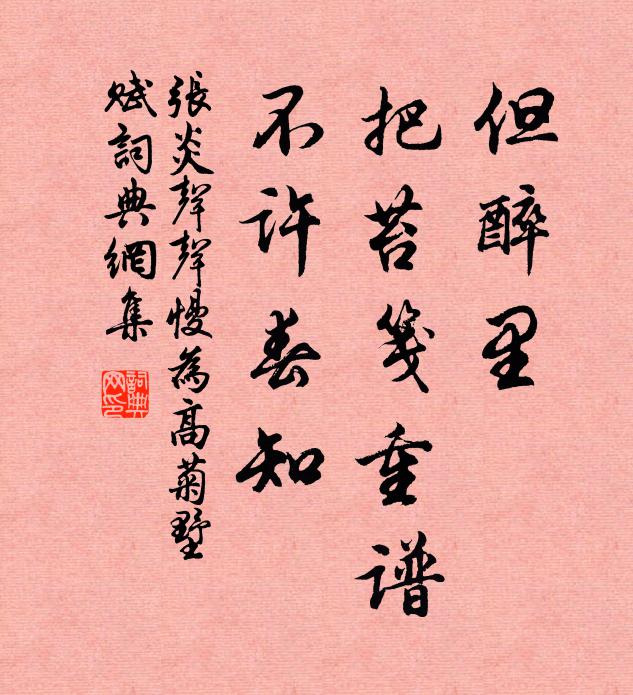 但醉里
把苔笺重谱
不许春知
張炎聲聲慢為高菊墅
賦詞典網集
詞典
网印